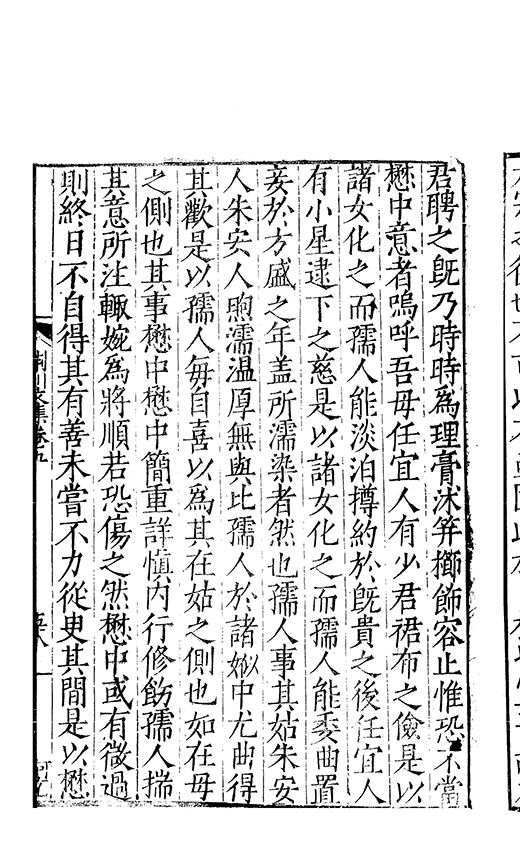 君聘之旣乃時時爲理膏沐笄櫛飾容止惟恐不當
懋中意者嗚呼吾母任宜人有少君裙布之儉是以
諸女化之而孺人能淡泊撙約於旣貴之後任宜人
有小星逮下之慈是以諸女化之而孺人能委曲置
妾於方盛之年盖所濡染者然也孺人事其姑朱安
人朱安人煦濡温厚無與比孺人於諸姒中尤曲得
其歡是以孺人毎自喜以爲其在姑之側也如在母
之側也其事懋中懋中簡重詳愼内行修飭孺人揣
其意所注輙婉爲將順若恐傷之然懋中或有微過
則終日不自得其有善未嘗不力從臾其間是以懋
荆川文集卷五